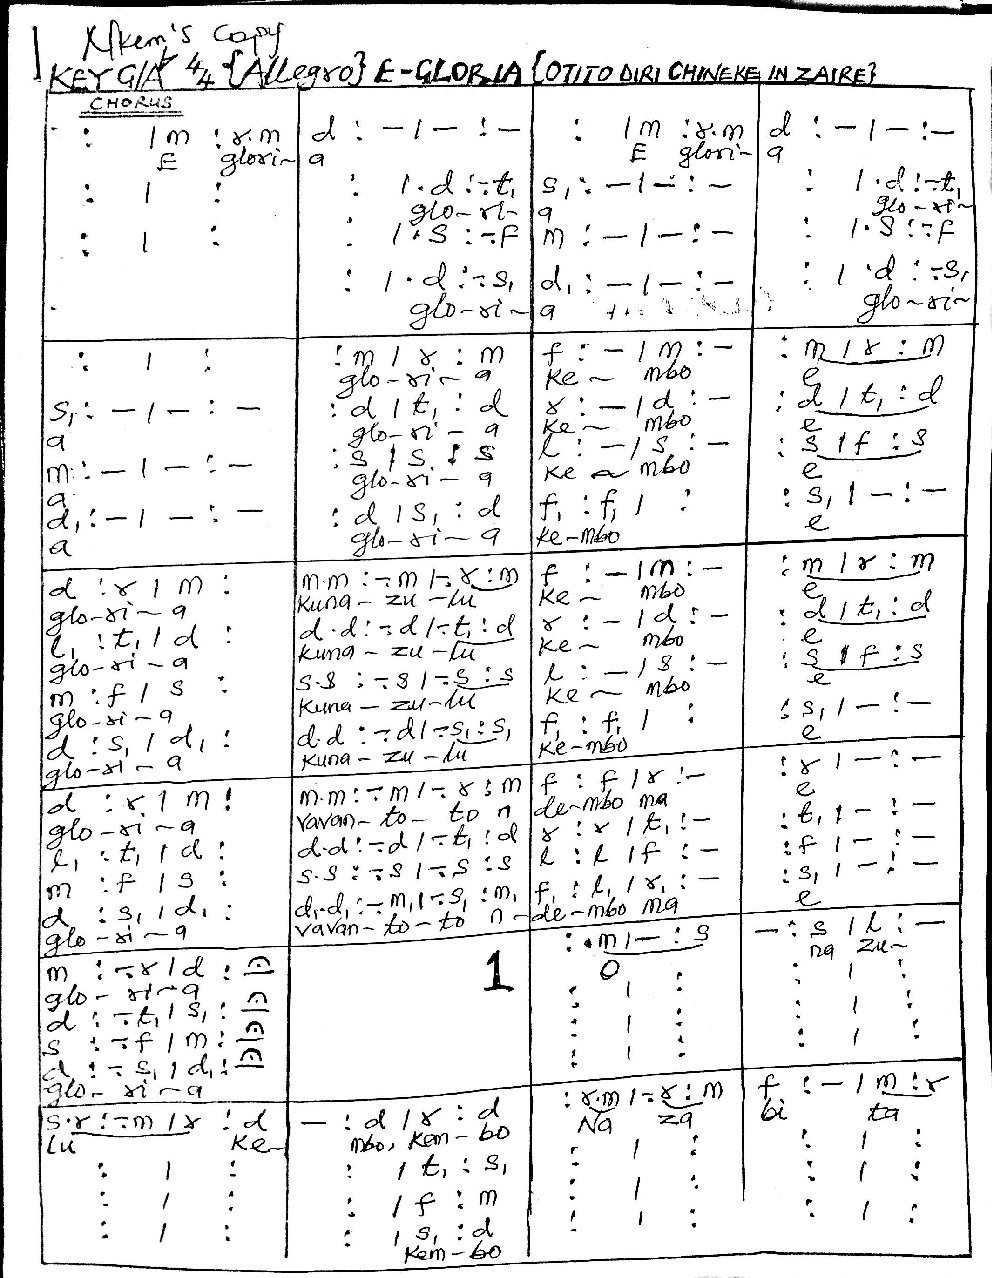 Nkem's Copy
KEY G/A 4/4 {Allegro} E-GLORIA {OTITO DIRI CHINEKE IN ZAIRE}
CHORUS
: | m : r.m d : – | – : – : | m : r.m d : – | – : –
E glori– a E glori– a
: | : : | . d : –. t, s, : – | – : – : | . d : –. t,
glo–ri– a glo–ri–
: | : : | . s : –. f m : – | – : – : | . s : –. f
: | . d : –. s, d, : – | – : – : | . d : –. s,
glo–ri– a glo–ri–
: | : : m | r : m f : – | m : – : m | r : m
glo–ri–a ke– mbo e
s, : – | – : – : d | t, : d r : – | d : – : d | t, : d
a glo–ri–a ke– mbo e
m : – | – : – : s | s : s l : – | s : – : s | f : s
a glo–ri–a ke– mbo e
d, : – | – : – : d | s, : d f, : f, | : : s, | – : –
a glo–ri–a ke–mbo e
d : r | m : m.m : –. m | –. r : m f : – | m : – : m | r : m
glo–ri–a kuna–zu–lu ke– mbo e
l, : t, | d : d.d : –. d | –. t, : d r : – | d : – : d | t, : d
glo–ri–a kuna–zu–lu ke– mbo e
m : f | s : s.s : –. s | –. s : s l : – | s : – : s | f : s
glo–ri–a kuna–zu–lu ke– mbo e
d : s, | d, : d.d : –. d | –. s, : s, f, : f, | : : s, | – : –
glo–ri–a kuna–zu–lu ke–mbo e
d : r | m : m.m : –. m | –. r : m f : f | r : – : r | – : –
glo–ri–a vavan–to–to n de–mbo na e
l, : t, | d : d.d : –. d | –. t, : d r : r | t, : – : t, | – : –
m : f | s : s.s : –. s | –. s : s l : l | f : – : f | – : –
d : s, | d, : d,.d, : –. m, | –. s, : m, f, : l, | r, : – : s, | – : –
glo–ri–a vavan–to–to n–de–mbo na e
m : –. r | d : 1 : . m | – : s – : s | l : –
glo–ri–a O na zu–
d : –. t, | s, : : | : : | :
s : –. f | m : : | : : | :
d : –. s, | d, : : | : : | :
glo–ri–a
s.r : –. m | r : d – : d | r : d : r.m | –. r : m f : – | m : r
lu ke– mbo, kem–bo Na za bi ta
: | : : | t, : s, : | : : | :
: | : : | f : m : | : : | :
: | : : | s, : d : | : : | :
kem–bo